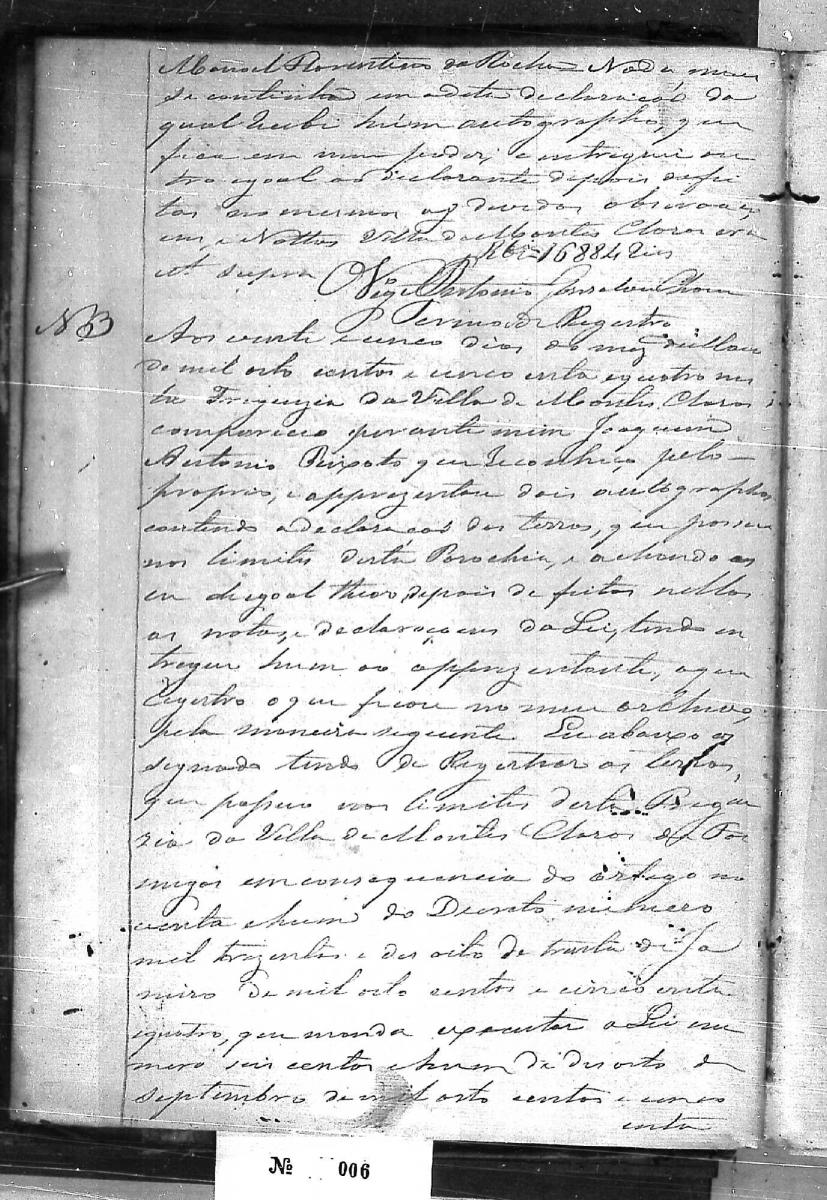 Manoel Florentino da Rocha Nada mais
se continha em a dita declaração da
qual recebi hum autographo, que
fica em meu poder, e entreguei ou
tro egoal ao declarante depois de fei
tas no mesmo as devidas observaço
ens, e Nottas Villa de Montes Claros era
ut supra
Rbi 16884 reis
Vigr.o Antonio Gonsalves Chaves
Termo de Registro
N 3
Aos vente e cinco dias do mez de Maio
de mil oito centos e cinco enta e quatro nes
ta Freguezia da Villa de Montes Claros
compareceo perante mim Joaquim
Antonio Peixoto que reconheço pelo
proprio, e apprezentou dois autographos
contendo a declaração das terras, que possue
nos limites desta Parochia, e achando os
eu de egoal theor, depois de feitas nellas
as notas, e declaraçoens da Lei, tendo en
tregue hum ao apprezentante, e que
registro o que ficou no meu archivo,
pela maneira seguinte Eu abaixo as
signado tendo de Registrar as terras,
que possuo nos limites desta Fregue
zia da Villa de Montes Claros de For
migas em consequencia do artigo no
venta e hum do Decreto numero
mil trezentos e des oito de trinta de Ja
neiro de mil oito centos e cinco enta
e quatro, que manda executar a Lei nu
mero seis centos e hum de des oito de
septembro de mil oito centos e cinco
enta
Nº 006